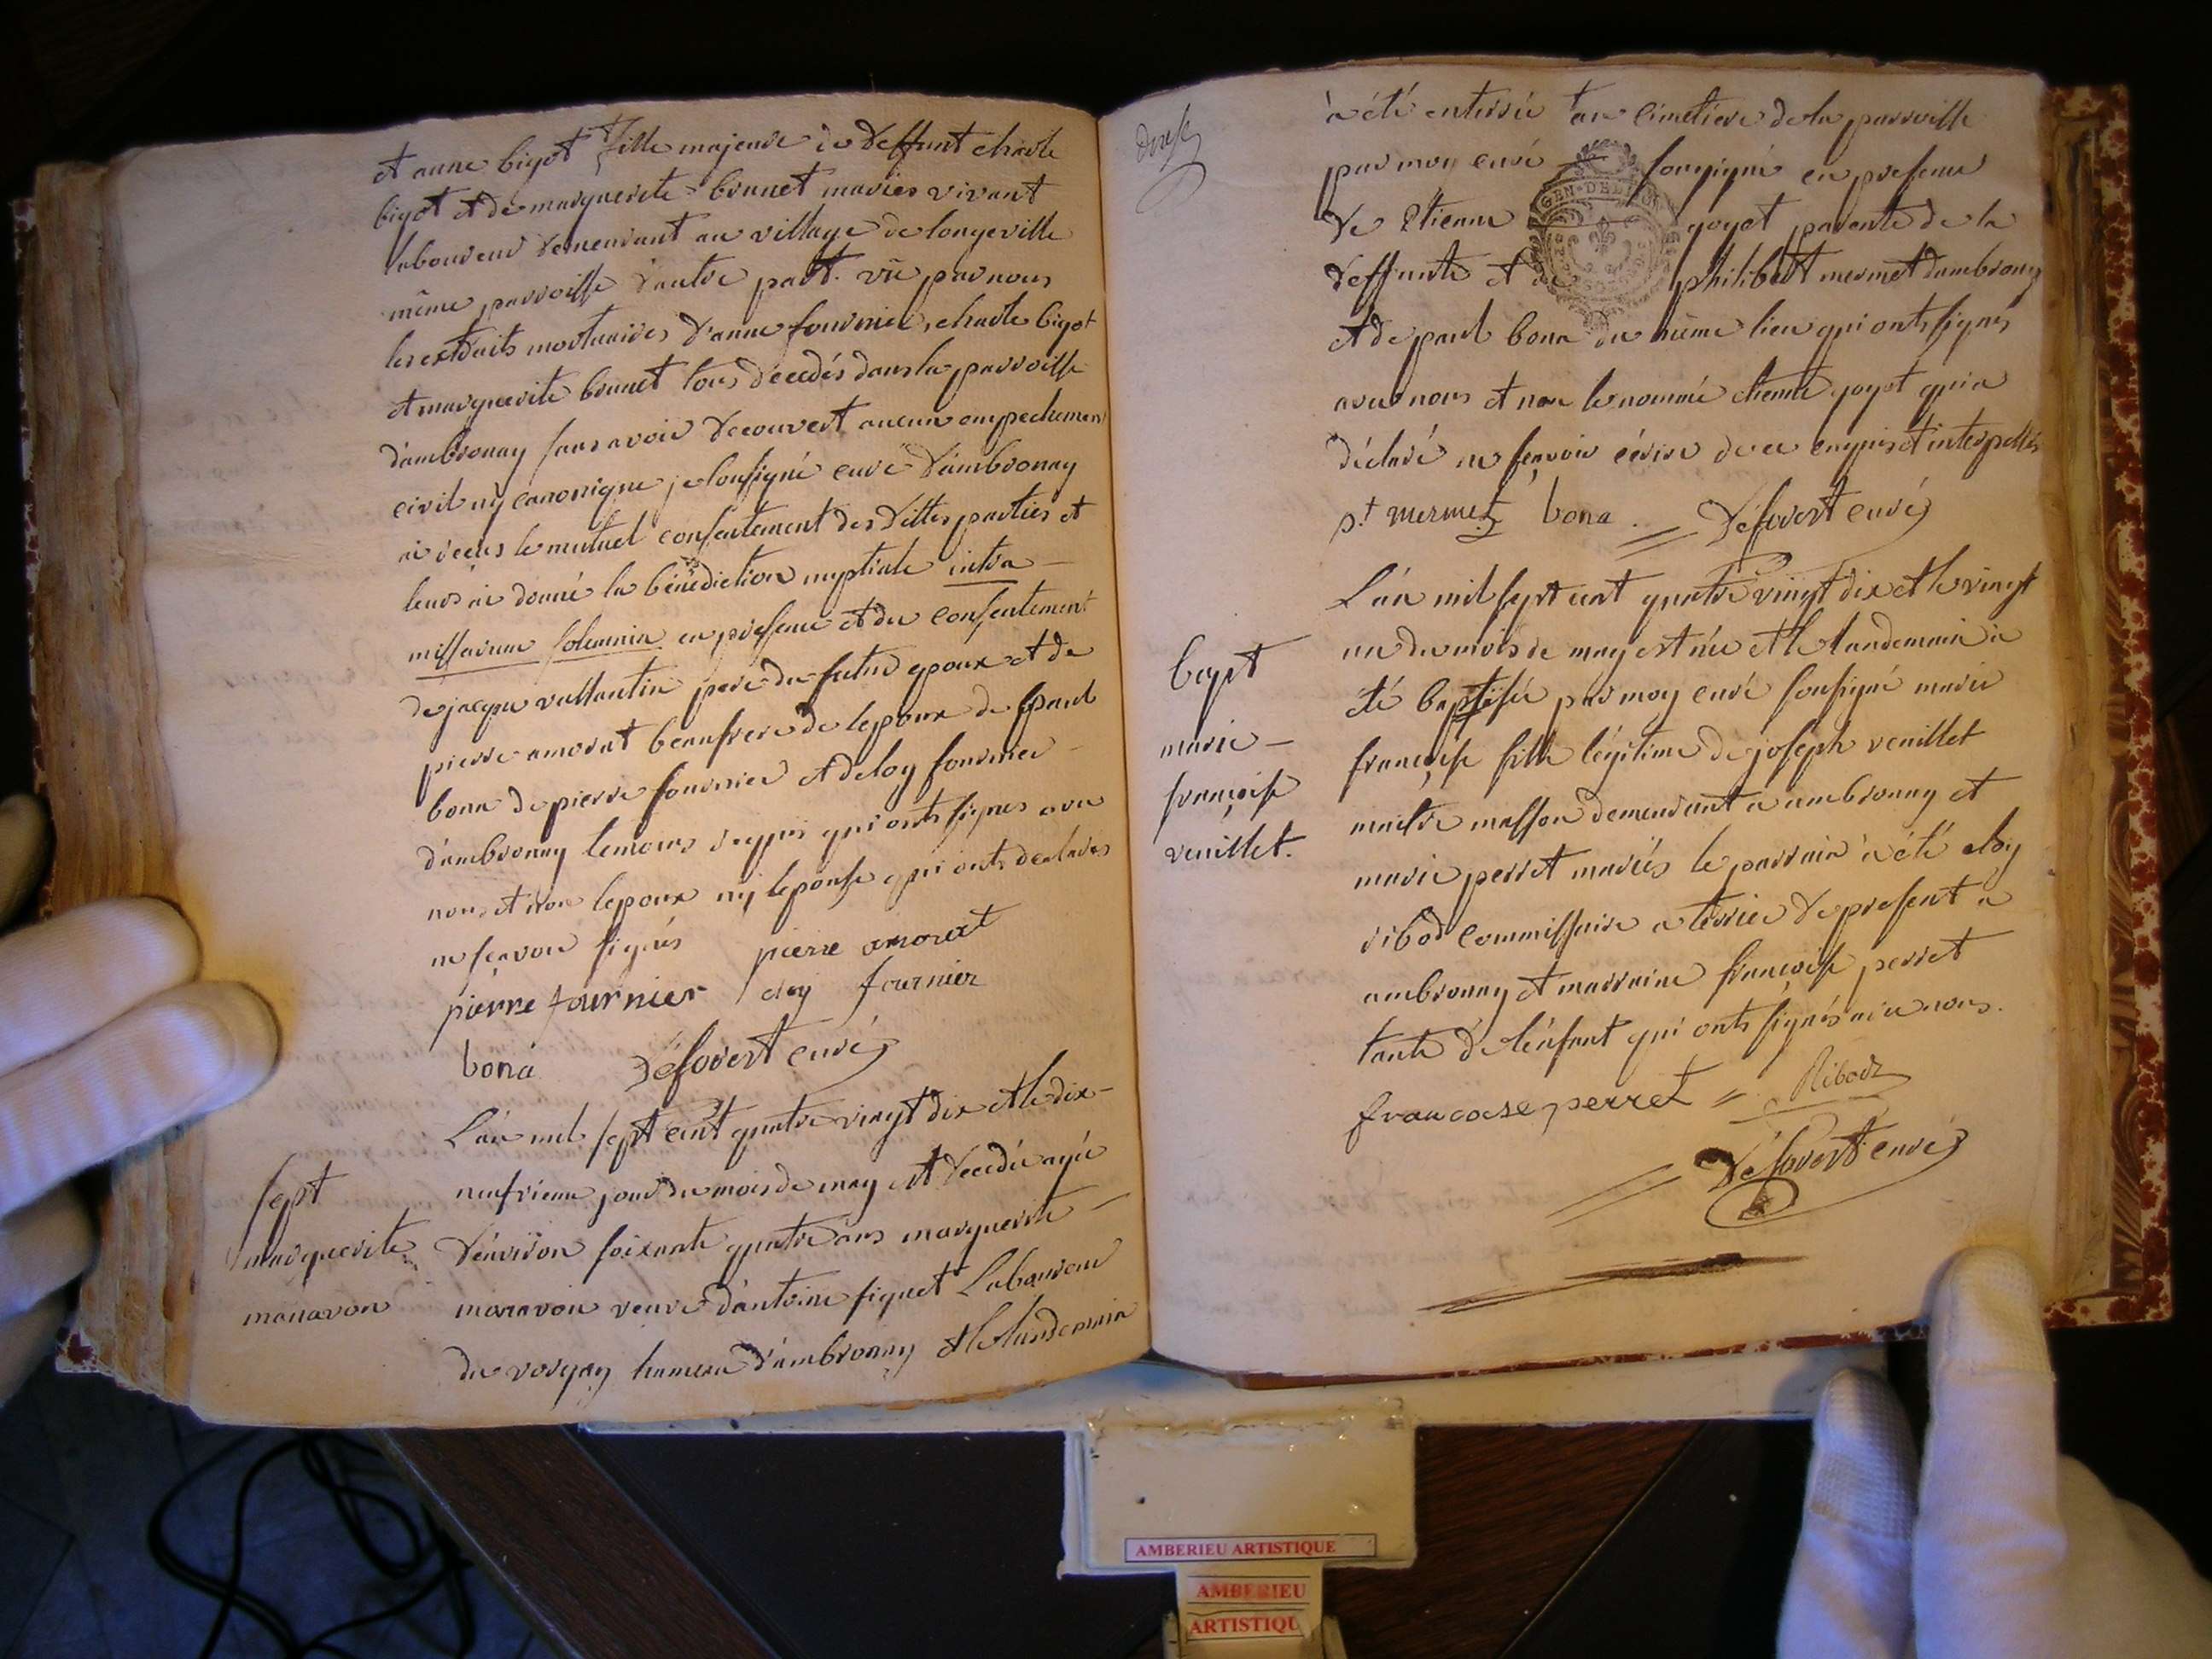 et anne bigot fille majeure de deffunt charle
bigot et de marguerite brunet mariés vivant
laboureur demeurant au village de longeville
même parroisse d'autre part. vû par nous
les extraits mortuaires d'anne fournier, charle bigot
et marguerite brunet tous décedés dans la parroisse
d'ambronay sans avoir decouvert aucun empechement
civil ny canonique je soussigné curé d'ambronay
ai reçus le mutuel consentement des dittes parties et
leurs ai donné la bénédiction nuptiale intra
missarum solemnia en presence et du consentement
de jacque vallantin pere du futur epoux et de
pierre amorat beaufrere de lepoux de paul
bona de pierre fournier et deloy fournier
d'ambronay temoins requis qui onts signes avec
nous et non lepoux ny lepouse qui onts declarés
ne sçavoir signés pierre amorat
pierre fournier eloy fournier
bona Déforest curé
L'an mil sept cent quatre vingt dix et le dix-
neufvieme jour du mois de may est decedée agée
sept
marguerite
manavon
d'environ soixante quatre ans marguerite
manavon veuve d'antoine fiquet Laboureur
du vorgey hameau d'ambronay et le landemain
douze
a été enterrée au cimetiere de la parroisse
par moy curé soussigné en presence
de Etienne goyet parente de la
deffunte et de philibert mermet dambronay
GEN. DE DIJON
et de paul bona du même lieu qui onts signés
avec nous et non le nommé etienne goyet qui a
déclaré ne sçavoir écrire de ce enquis et interpellés
p.t mermet bona. Déforest curé
L'an mil sept cent quatre vingt dix et le vingt
un du mois de may est née et le landemain a
été baptisée par moy curé soussigné marie
bapt
marie
françoise
veuillet.
françoise fille légitime de joseph veuillet
maitre masson demeurant a ambronay et
marie perret mariés le parrain a été eloy
ribod commissaire a terrier de present a
ambronay et marraine françoise perret
tante de l'enfant qui onts signés avec nous.
francoise perret Ribod
Déforest curé
AMBERIEU ARTISTIQUE
AMBERIEU
ARTISTIQU